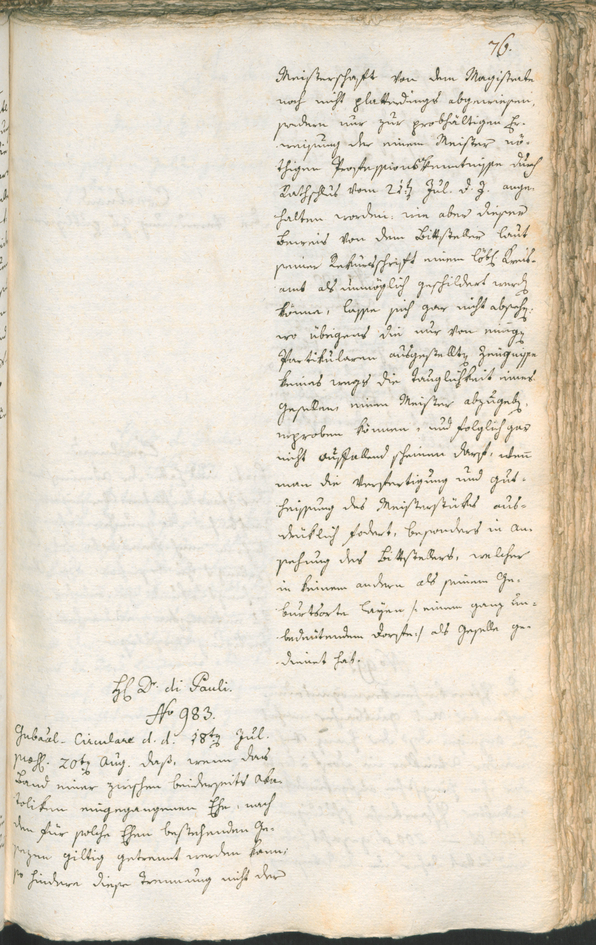 76.
Meisterschaft von dem Magistrate
noch nicht platterdings abgewiesen,
sondern nur zur probhältigen Er-
weisung der einem Meister nö-
thigen Professionskenntnisse durch
Rathschlus vom 21t Jul. d. J. ange-
halten worden; wie aber dieser
Beweis von dem Bittsteller laut
seiner Rekursschrift einem löbl Kreis-
amt als unmöglich geschildert werdn
könne, lasse sich gar nicht absehn,
wo übrigens die nur von einign
Partikularen ausgestelltn Zeugnisse
keines wegs die Tauglichkeit eines
Gesellen einen Meister abzugebn,
erproben können, und folglich gar
nicht auffallend scheinen darf, wenn
man die Verfertigung und Gut-
heissung des Meisterstüks aus-
drüklich fodert, besonders in An-
sehung des Bittstellers, welcher
in keinem andern als seinem Ge-
burtsorte Layen /: einem ganz un-
bedeutendem Dorfe :/ als Geselle ge-
dienet hat.
H Dr. di Pauli.
No 983.
Gubrāl-Circulare d. d. 18tn Jul.
20tn Aug. daß, wenn das
Band einer zwischen beiderseits Aka-
toliken eingegangenen Ehe, nach
den für solche Ehen bestehenden Ge-
sezen giltig getrennt werden kann;
so hindere diese Trennung nicht der